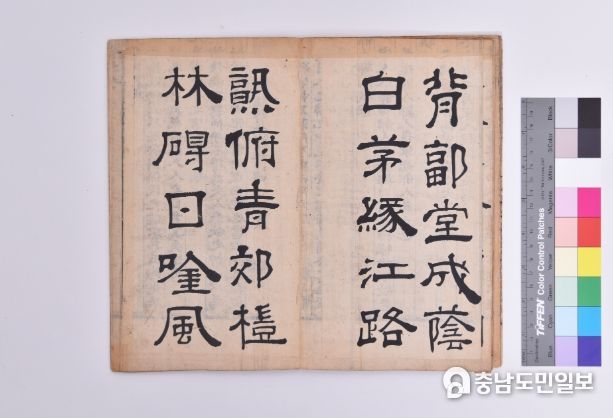 背郭堂成蔭
白茅緣江路
熟俯青郊榿
林碍日唫風
Black
3/Color
White
Magenta
Red
Yellow
Green
Cyan
Blue
TIFFEN Color Control Patches
충남도민일보